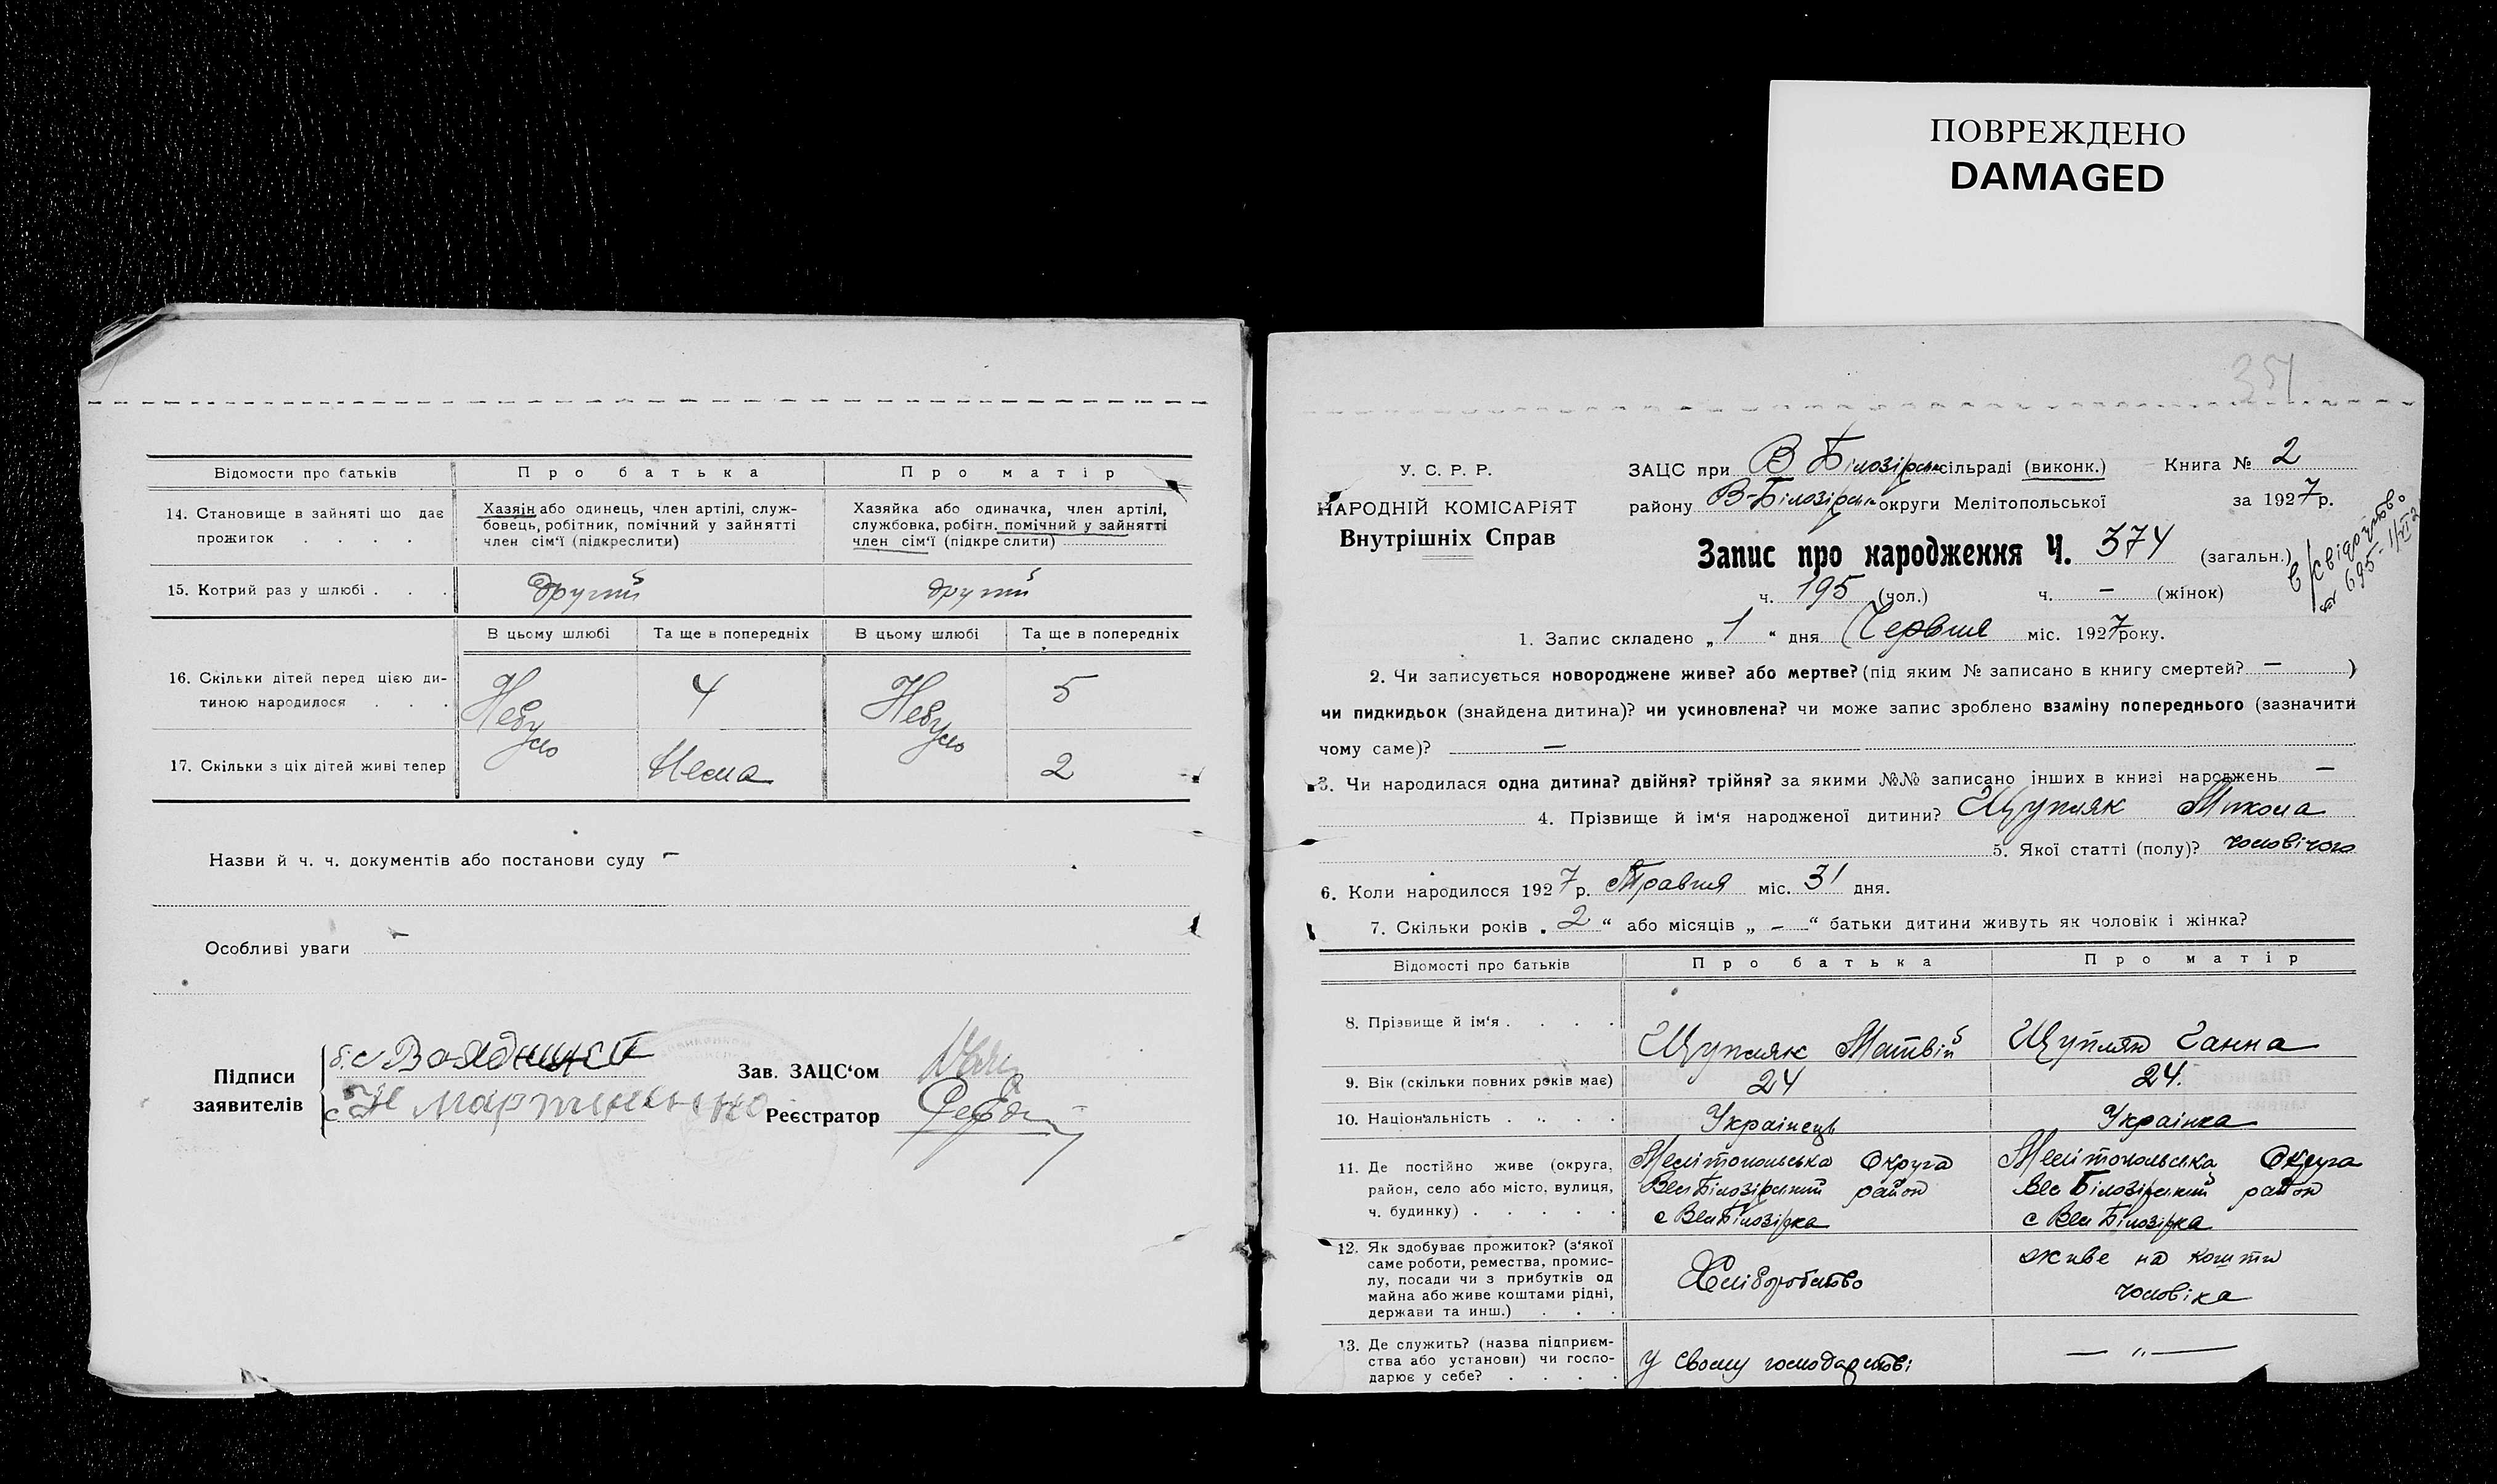 ПОВРЕЖДЕНО
DAMAGED
Відомости про батьків Про батька Про матір
14. Становище в зайняті що дає прожиток . . . .
Хазяїн або одинець, член артілі, служ-
бовець, робітник, помічний у зайнятті
член сім'ї (підкреслити)
Хазяйка або одиначка, член артілі,
службовка, робітн. помічний у зайнятті
член сім'ї (підкреслити)
15. Котрий раз у шлюбі . . . другий другий
В цьому шлюбі Та ще в попередніх В цьому шлюбі Та ще в попередніх
16. Скільки дітей перед цією ди-
тиною народилося . . . Небуло 4 Небуло 5
17. Скільки з ціх дітей живі тепер Нема 2
Назви й ч. ч. документів або постанови суду –
Особливі уваги –
Підписи
заявителів
Зав. ЗАЦС'ом
Реєстратор
354
У. С. Р. Р.
НАРОДНІЙ КОМІСАРІЯТ
Внутрішніх Справ
ЗАЦС при В Білозірськ сільраді (виконк.) Книга № 2
району В-Білозірськ округи Мелітопольської за 1927 р.
Запис про народження Ч. 374 (загальн.)
ч. 195 (чол.) ч. – (жінок)
1. Запис складено „1“ дня Червня міс. 1927 року.
2. Чи записується новороджене живе? або мертве? (під яким № записано в книгу смертей? – )
чи пидкидьок (знайдена дитина)? чи усиновлена? чи може запис зроблено взаміну попереднього (зазначити
чому саме)? –
3. Чи народилася одна дитина? двійня? трійня? за якими №№ записано інших в книзі народжень –
4. Прізвище й ім'я народженої дитини? Щупляк Микола
5. Якої статті (полу)? чоловічого
6. Коли народилося 1927 р. Травня міс. 31 дня.
7. Скільки років „2“ або місяців „–“ батьки дитини живуть як чоловік і жінка?
Відомості про батьків Про батька Про матір
8. Прізвище й ім'я . . . . Щупляк Матвій Щупляк Ганна
9. Вік (скільки повних років має) 24 24.
10. Національність . . . . Українець Українка
11. Де постійно живе (округа,
район, село або місто, вулиця,
ч. будинку) . . . . .
Мелітопольська Округа
Вел Білозірський район
с Вел Білозірка
Мелітопольська Округа
Вел Білозірський район
с Вел Білозірка
12. Як здобуває прожиток? (з'якої
саме роботи, ремества, промис-
лу, посади чи з прибутків од
майна або живе коштами рідні,
держави та инш.) . . .
Хліборобство
живе на кошти
чоловіка
13. Де служить? (назва підприєм-
ства або установи) чи госпо-
дарює у себе? . . . .
у свому господарстві
— „ —